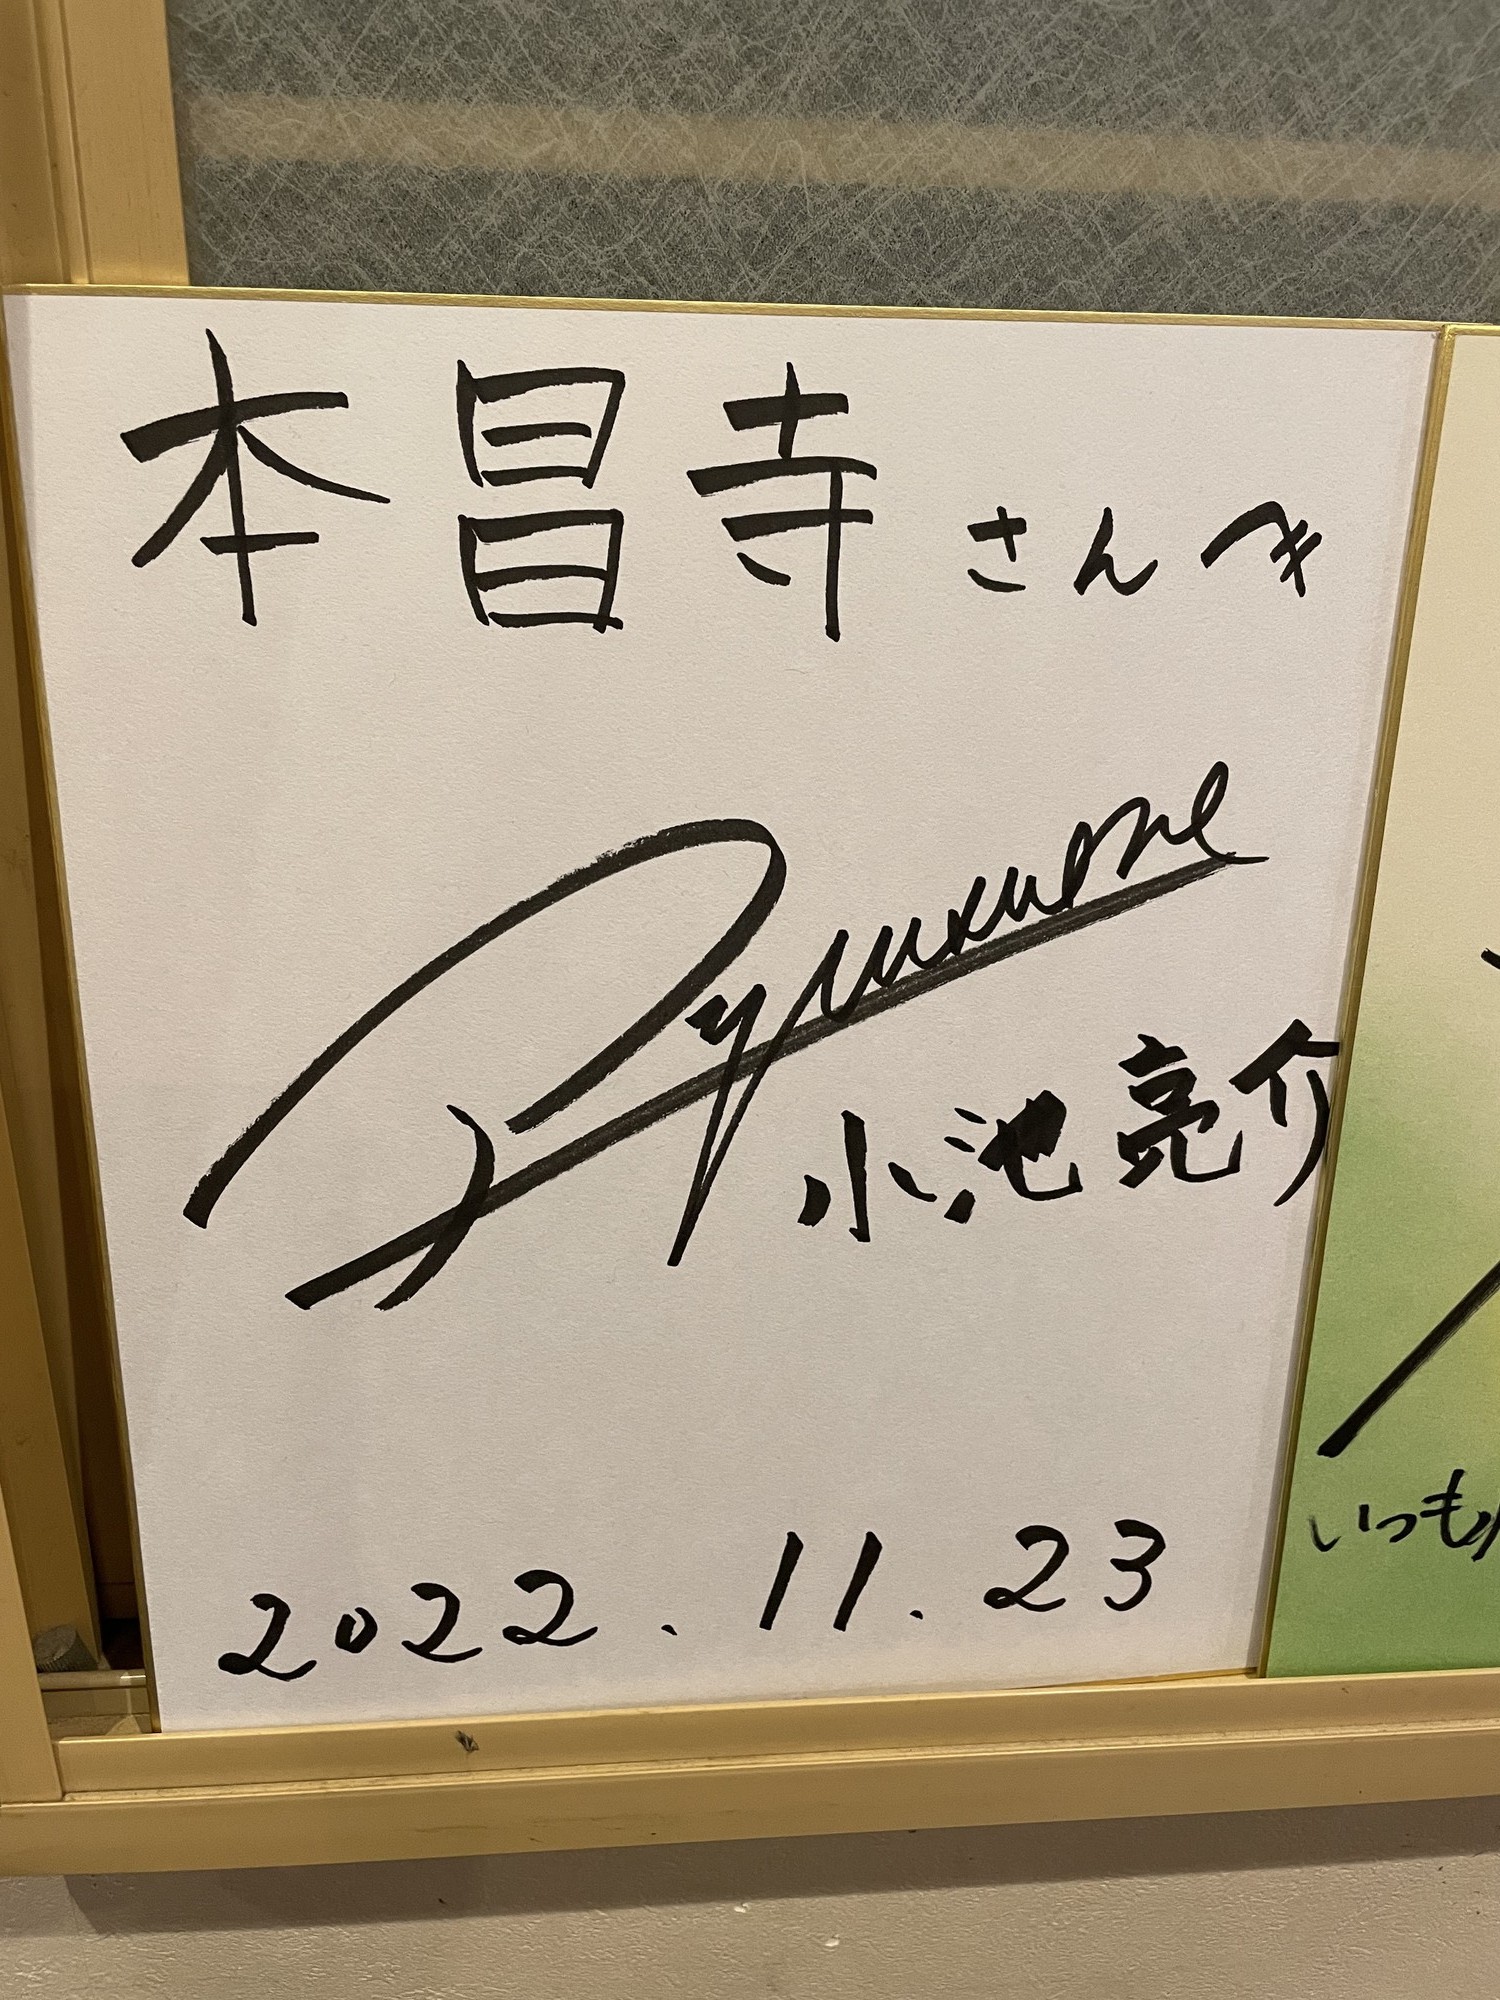 本昌寺さんへ
小池亮介
2022.11.23
いつも